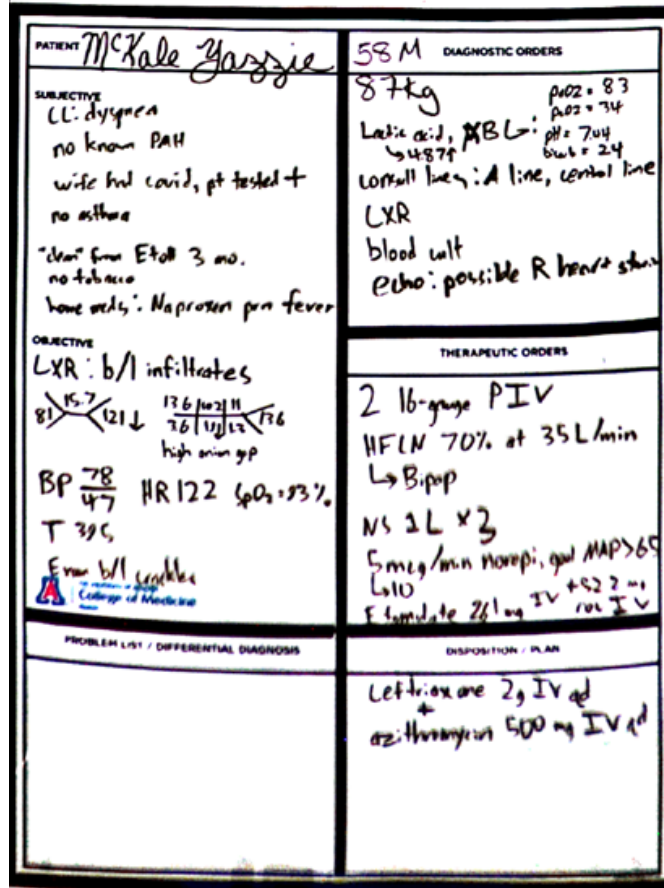 PATIENT McKale Yazzie
SUBJECTIVE
CC: dyspnea
no known PAH
wife had covid, pt tested +
no asthma
"clean" from EtOH 3 mo.
no tobacco
home meds: Naproxen prn fever
OBJECTIVE
CXR: b/l infiltrates
15.7
81 121↓
136 102 11
3.6 136
high anion gap
BP 78/47 HR 122 SpO2 = 83%
T 39.5
Exam b/l crackles
College of Medicine
58 M DIAGNOSTIC ORDERS
87kg
Lactic acid, ABG:
↳ 4.87↑
pO2 = 83
pCO2 = 34
pH = 7.04
bicarb = 24
consult lines: A line, central line
CXR
blood cult
echo: possible R heart strain
THERAPEUTIC ORDERS
2 16-gauge PIV
HFCN 70% at 35 L/min
↳ Bipap
NS 1L x 3
5 mcg/min norepi, goal MAP>65
↳ 10
Etomidate mg IV + 52.2 mg
roc IV
PROBLEM LIST / DIFFERENTIAL DIAGNOSIS
DISPOSITION / PLAN
Ceftriaxone 2g IV qd
+
azithromycin 500 mg IV qd